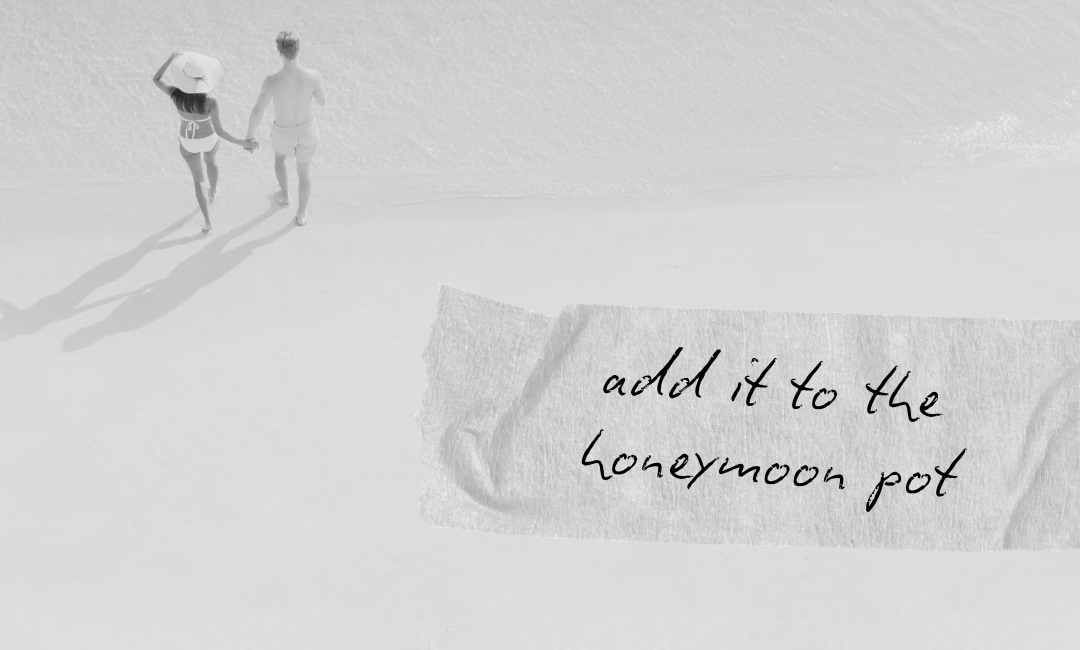 add it to the
honeymoon pot